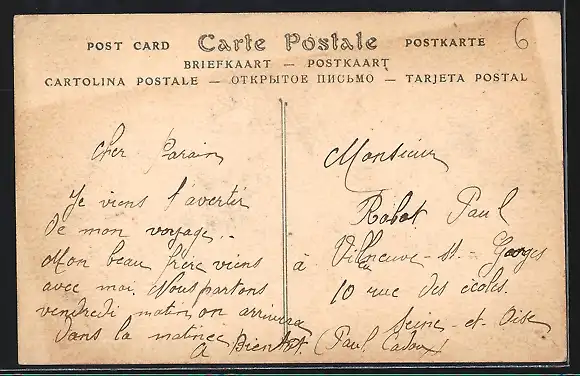 6
POST CARD Carte Postale POSTKARTE
BRIEFKAART — POSTKAART
CARTOLINA POSTALE — ОТКРЫТОЕ ПИСЬМО — TARJETA POSTAL
Cher Parain
Je viens t'avertir
de mon voyage..
Mon beau frère viens
avec moi. Nous partons
vendredi matin, on arrivera
dans la matinée
A Bientôt. (Paul Cadoux)
Monsieur
Robot Paul
à Villeneuve-St-Georges
10 rue des écoles.
Seine-et-Oise